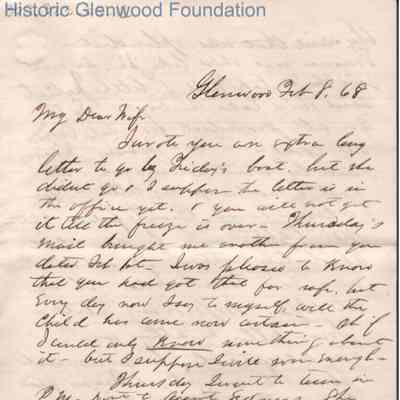 Historic Glenwood Foundation
Glenwood Feb 8, 68
My Dear Wife
I wrote you an extra long
letter to go by Friday's boat. but she
didnt go & I suppose the letter is in
the office yet. & you will not get
it till the freeze is over - Thursday's
mail brought me another from you
dated Feb 1st - I was pleased to know
that you had got that far safe, but
Every day now I say to myself, well the
child has come now certain - Oh if
I could only Know something about
it - but I suppose I will soon enough -
Thursday I went to town in
P.M. went to